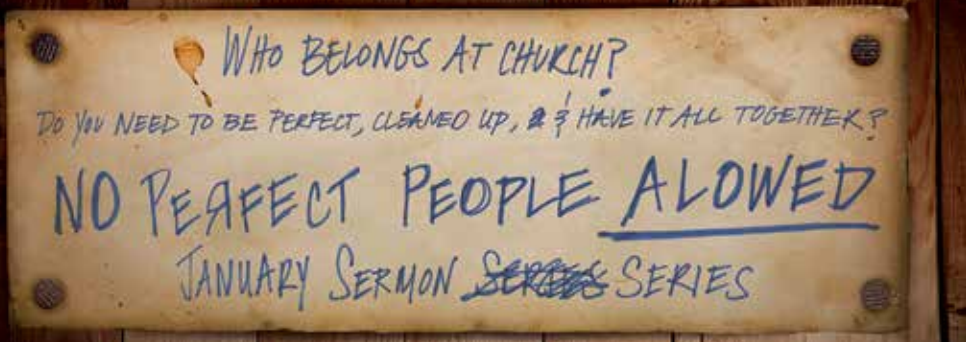 WHO BELONGS AT CHURCH?
DO YOU NEED TO BE PERFECT, CLEANED UP, & HAVE IT ALL TOGETHER?
NO PERFECT PEOPLE ALOWED
JANUARY SERMON SERIES